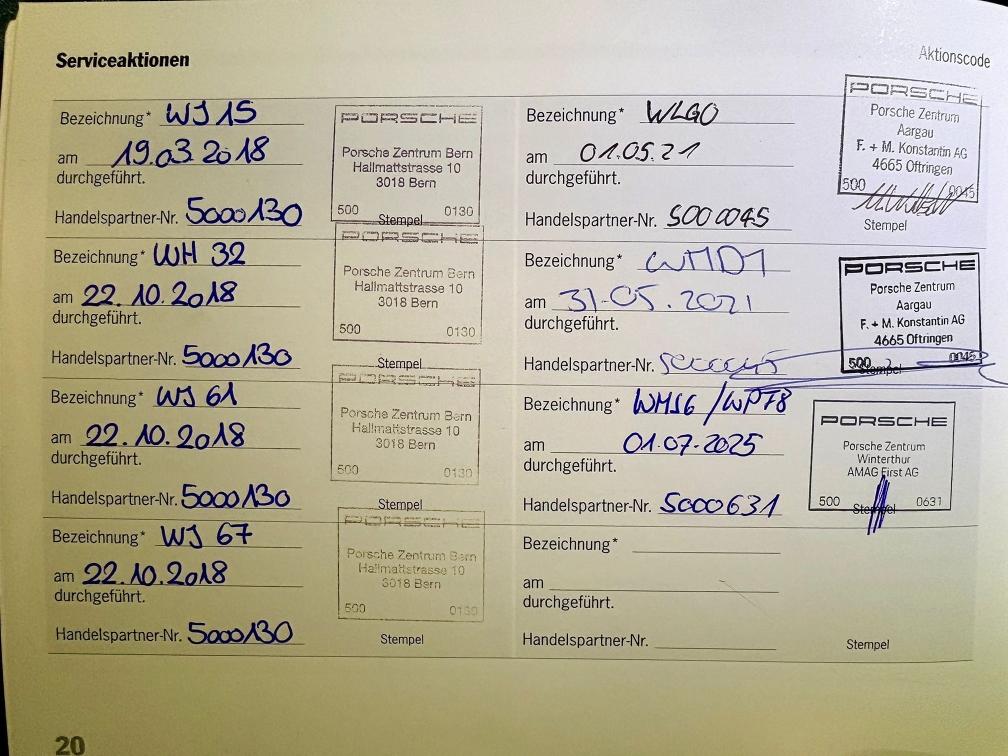 Serviceaktionen
Aktionscode
Bezeichnung* WJ 15
am 19.03.2018
durchgeführt.
Handelspartner-Nr. 5000130
PORSCHE
Porsche Zentrum Bern
Hallmattstrasse 10
3018 Bern
500 0130
Stempel
Bezeichnung* WH 32
am 22.10.2018
durchgeführt.
Handelspartner-Nr. 5000130
PORSCHE
Porsche Zentrum Bern
Hallmattstrasse 10
3018 Bern
500 0130
Stempel
Bezeichnung* WJ 61
am 22.10.2018
durchgeführt.
Handelspartner-Nr. 5000130
PORSCHE
Porsche Zentrum Bern
Hallmattstrasse 10
3018 Bern
500 0130
Stempel
Bezeichnung* WJ 67
am 22.10.2018
durchgeführt.
Handelspartner-Nr. 5000130
PORSCHE
Porsche Zentrum Bern
Hallmattstrasse 10
3018 Bern
500 0130
Stempel
Bezeichnung*
am 01.05.21
durchgeführt.
Handelspartner-Nr. 5000045
PORSCHE
Porsche Zentrum
Aargau
F. + M. Konstantin AG
4665 Oftringen
500 0045
Stempel
Bezeichnung* WMD1
am 31-05.2021
durchgeführt.
Handelspartner-Nr.
PORSCHE
Porsche Zentrum
Aargau
F. + M. Konstantin AG
4665 Oftringen
500 0045
Stempel
Bezeichnung*
am 01.07.2025
durchgeführt.
Handelspartner-Nr. 5000631
PORSCHE
Porsche Zentrum
Winterthur
AMAG First AG
500 0631
Stempel
Bezeichnung*
am
durchgeführt.
Handelspartner-Nr.
Stempel
20